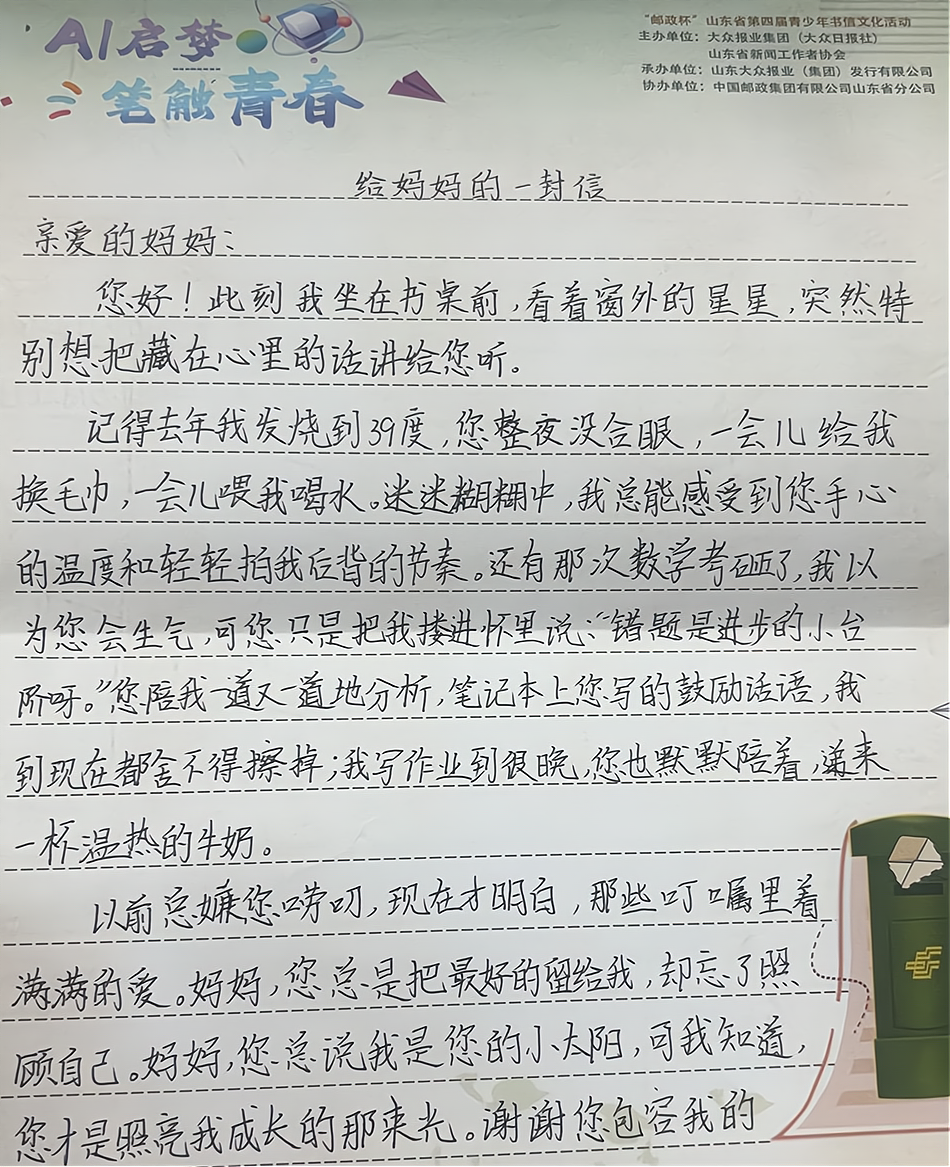 AI启梦
笔触青春
“邮政杯”山东省第四届青少年书信文化活动
主办单位：大众报业集团（大众日报社）
山东省新闻工作者协会
承办单位：山东大众报业（集团）发行有限公司
协办单位：中国邮政集团有限公司山东省分公司
给妈妈的一封信
亲爱的妈妈：
您好！此刻我坐在书桌前，看着窗外的星星，突然特
别想把藏在心里的话讲给您听。
记得去年我发烧到39度，您整夜没合眼，一会儿给我
换毛巾，一会儿喂我喝水。迷迷糊糊中，我总能感受到您手心
的温度和轻轻拍我后背的节奏。还有那次数学考砸了，我以
为您会生气，可您只是把我搂进怀里说：“错题是进步的小台
阶呀。”您陪我一道又一道地分析，笔记本上您写的鼓励话语，我
到现在都舍不得擦掉；我写作业到很晚，您也默默陪着，递来
一杯温热的牛奶。
以前总嫌您唠叨，现在才明白，那些叮嘱里着
满满的爱。妈妈，您总是把最好的留给我，却忘了照
顾自己。妈妈，您总说我是您的小太阳，可我知道，
您才是照亮我成长的那束光。谢谢您包容我的